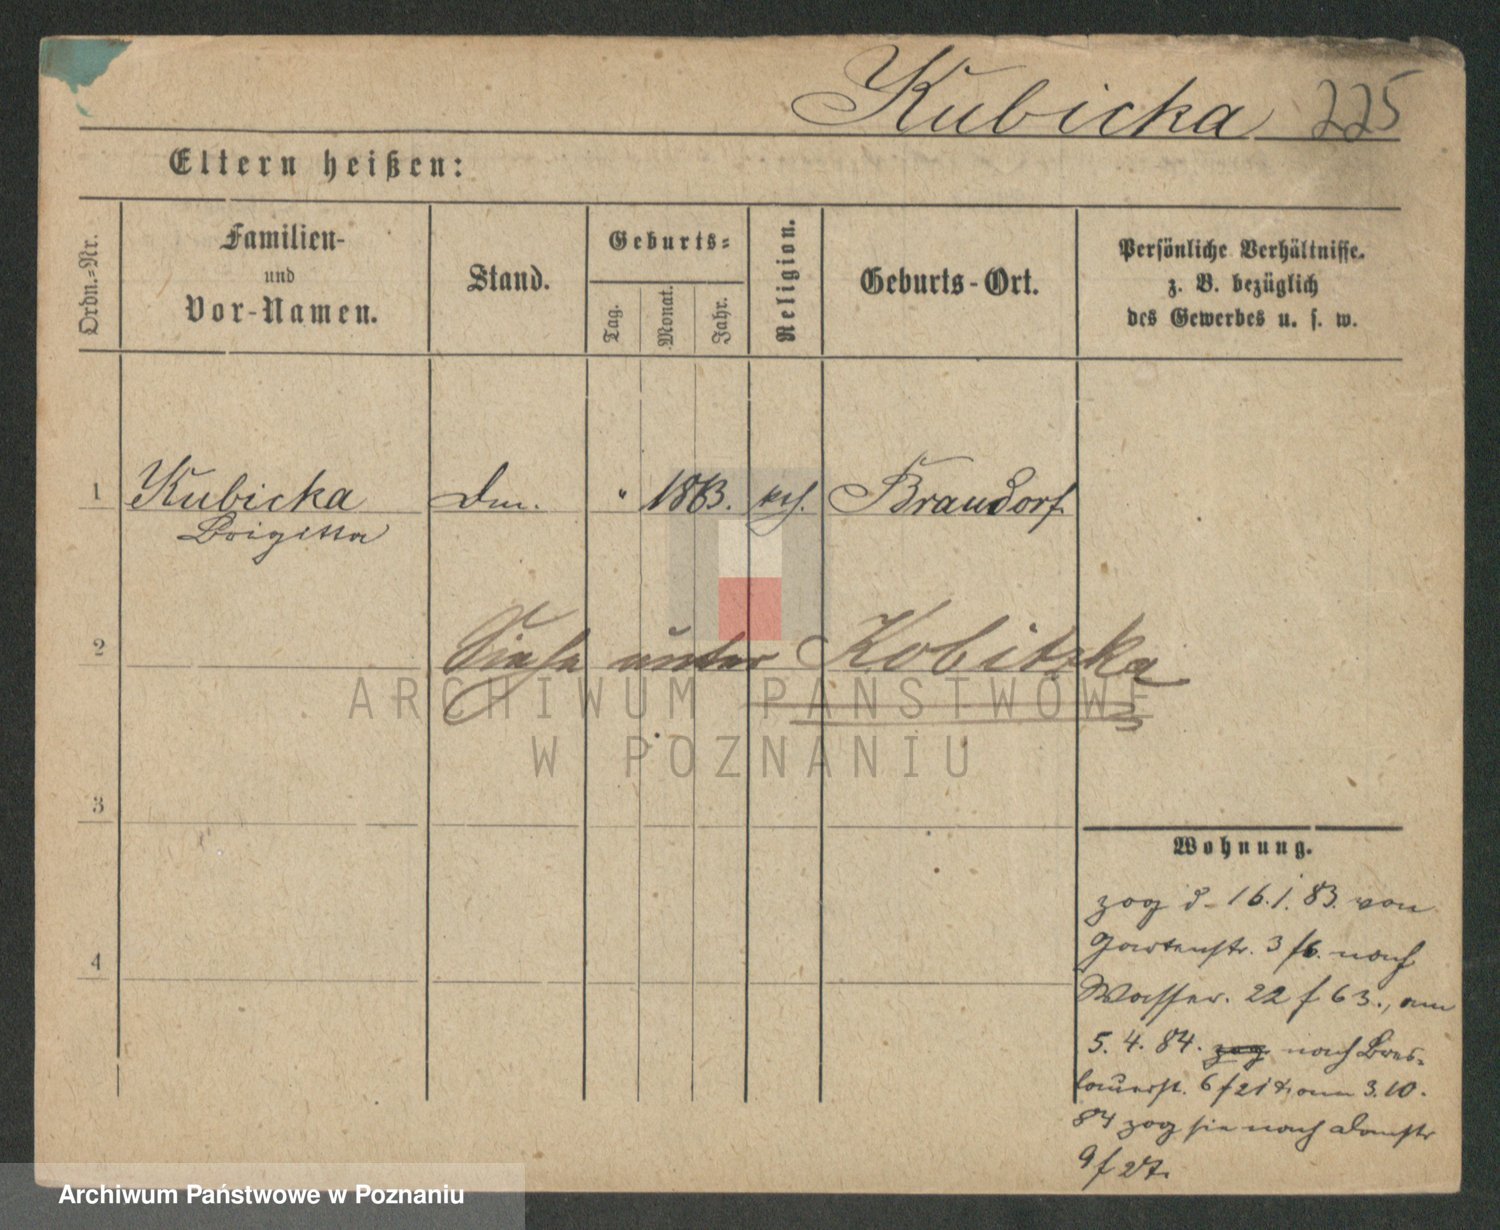 Kubicka 225
Eltern heißen:
Ordn.-Nr.
Familien-
und
Vor-Namen.
Stand.
Geburts-
Tag.
Monat.
Jahr.
Religion.
Geburts-Ort.
Persönliche Verhältnisse.
z. B. bezüglich
des Gewerbes u. s. w.
1 Kubicka " 1863. kth. Braudorf
Brigitta
2 Siehe unter Kobitzka
ARCHIWUM PAŃSTWOWE
W POZNANIU
3
4
Wohnung.
zog d. 16.1.83. von
Gartenstr. 3 f6. nach
Wasser. 22 f 63., am
5. 4. 84. zog nach Bres-
lauerst. 6 f 21 am 3.10.
84 zog sie nach Domstr
9 f 27.
Archiwum Państwowe w Poznaniu